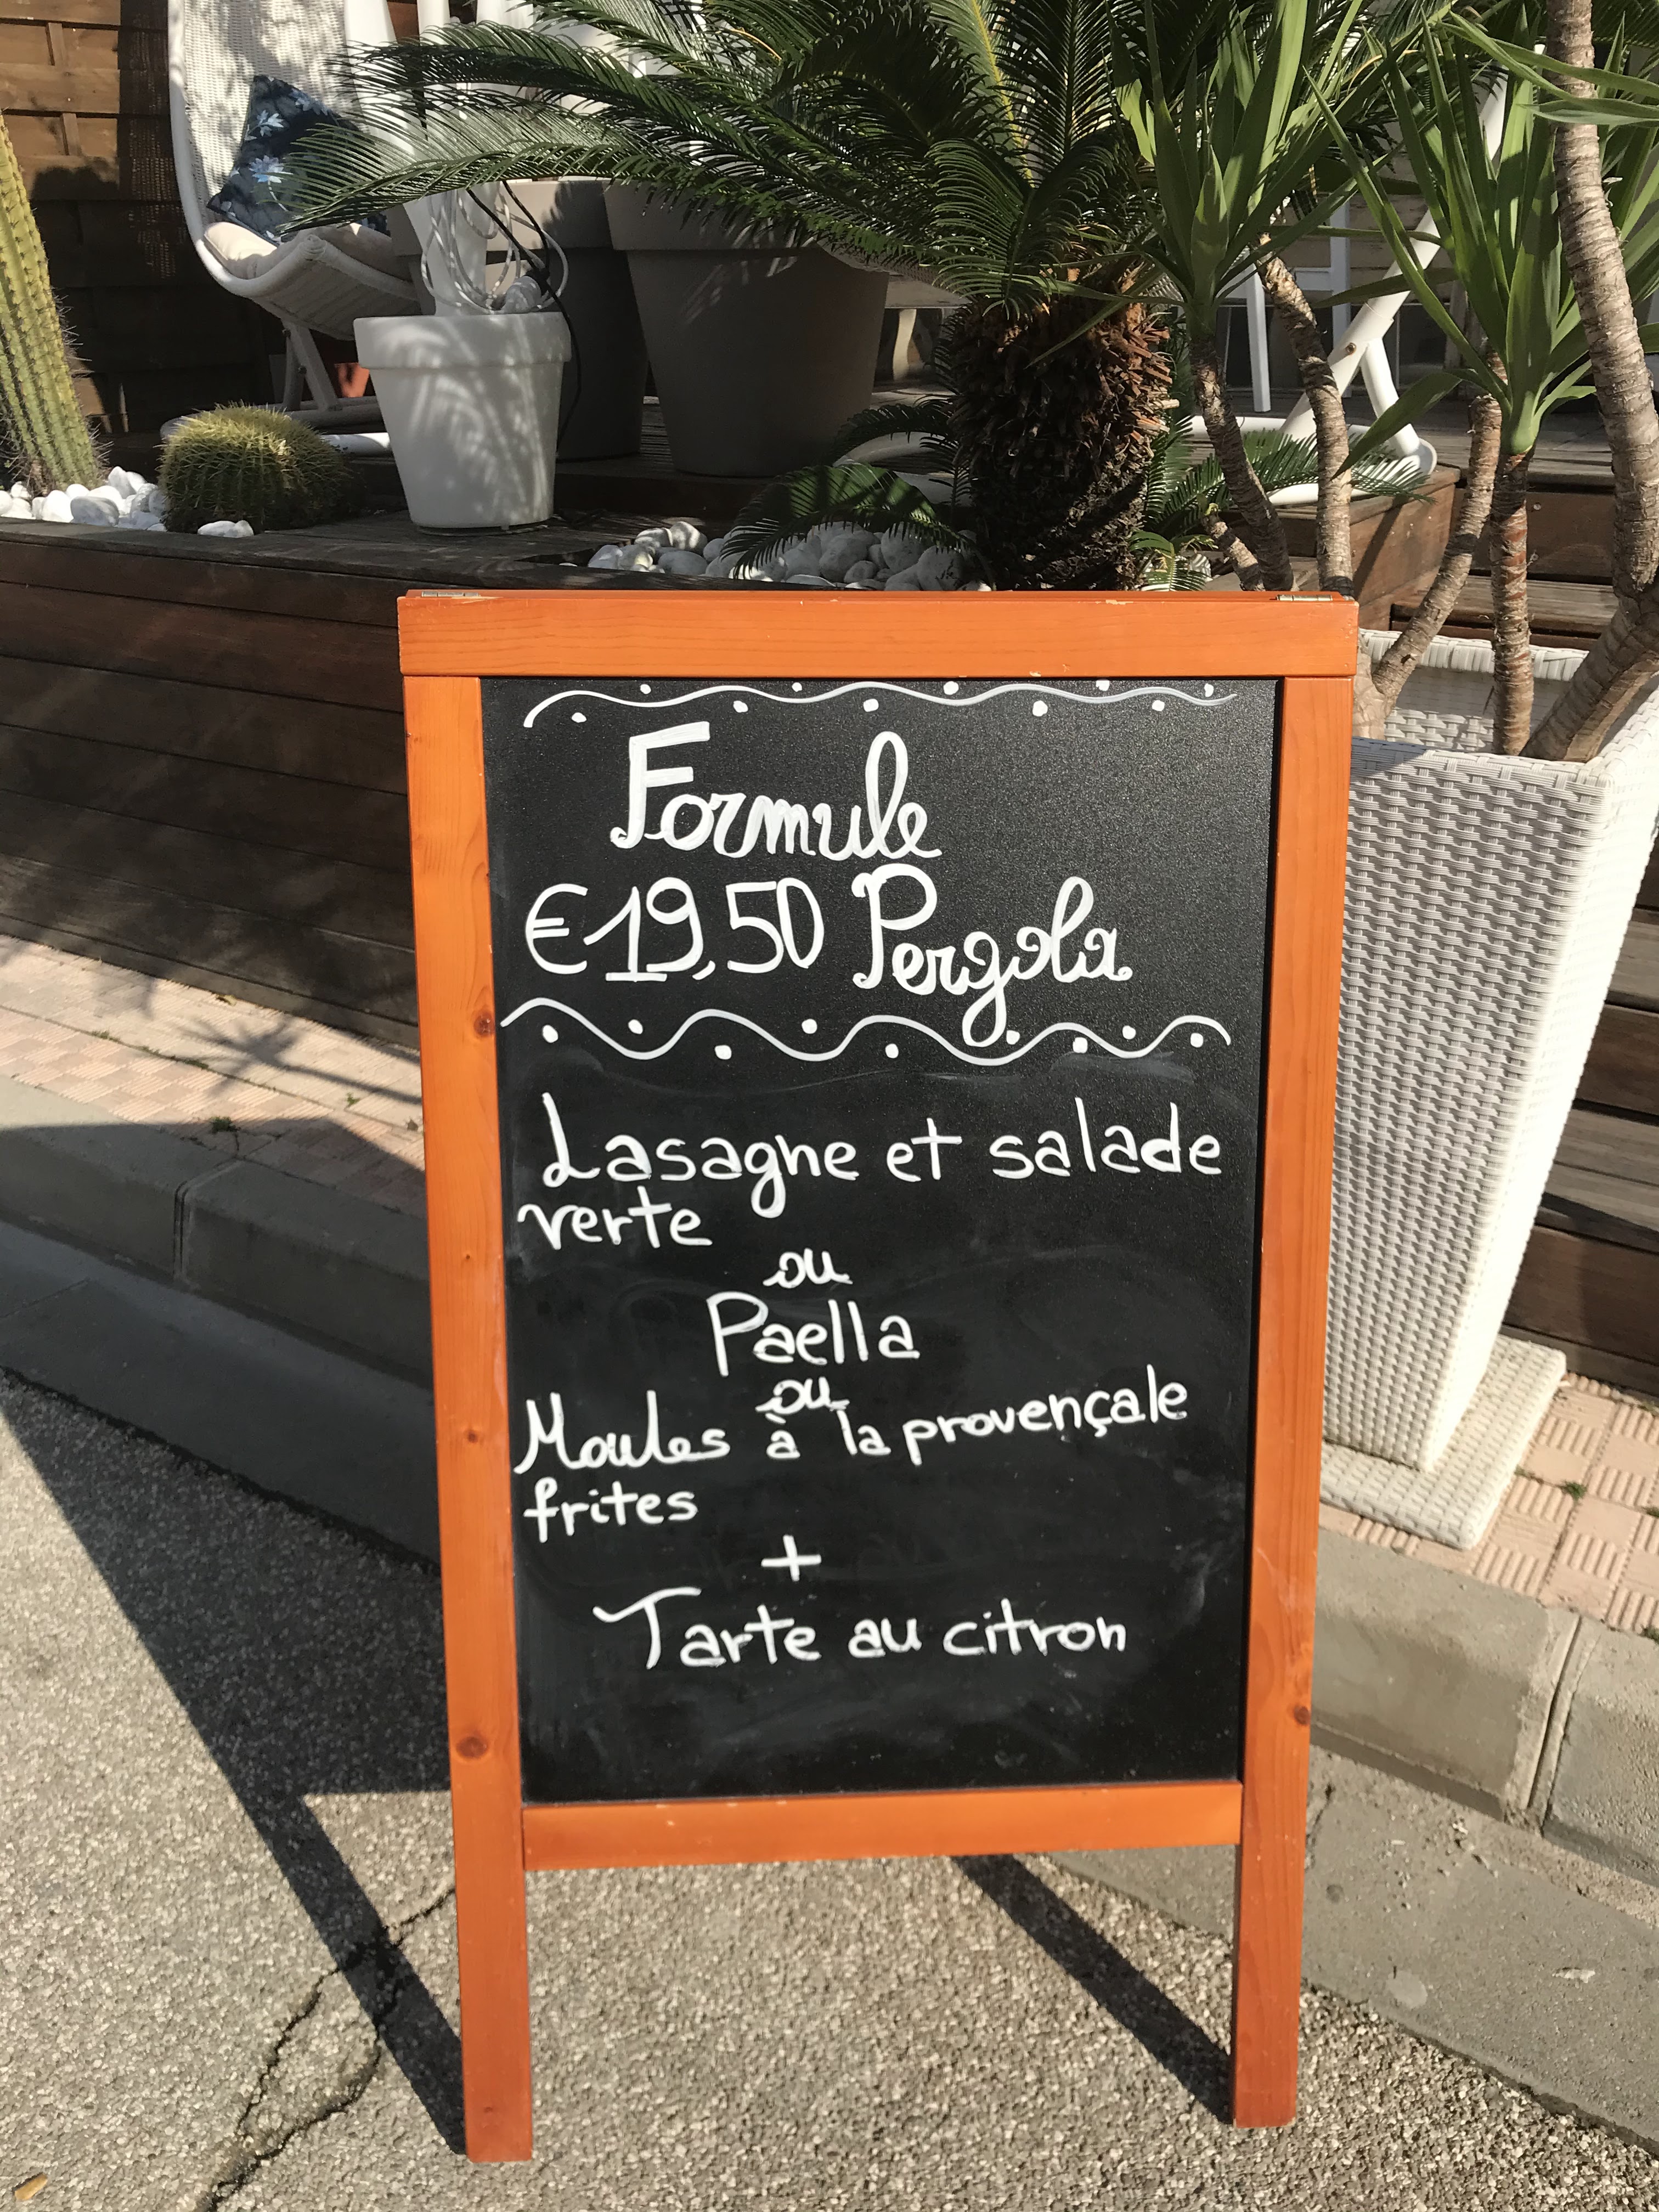 Formule
€19,50 Pergola
Lasagne et salade
verte
ou
Paella
ou
Moules à la provençale
frites
+
Tarte au citron